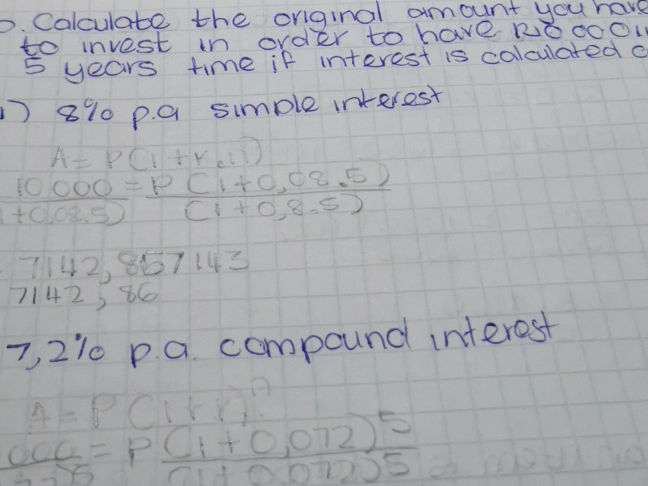 Calculate the original amount you have
to invest in order to have R10 000 in
5 years time if interest is calculated
1) 8% p.a simple interest
A = P(1+r.i)
10 000 = P (1+0,08.5)
1+0,08.5) (1+0,8.5)
7142,857143
7142,86
7,2% p.a. compound interest
A = P(1+r)
000 = P (1+0,072)5
(1+0,072)5